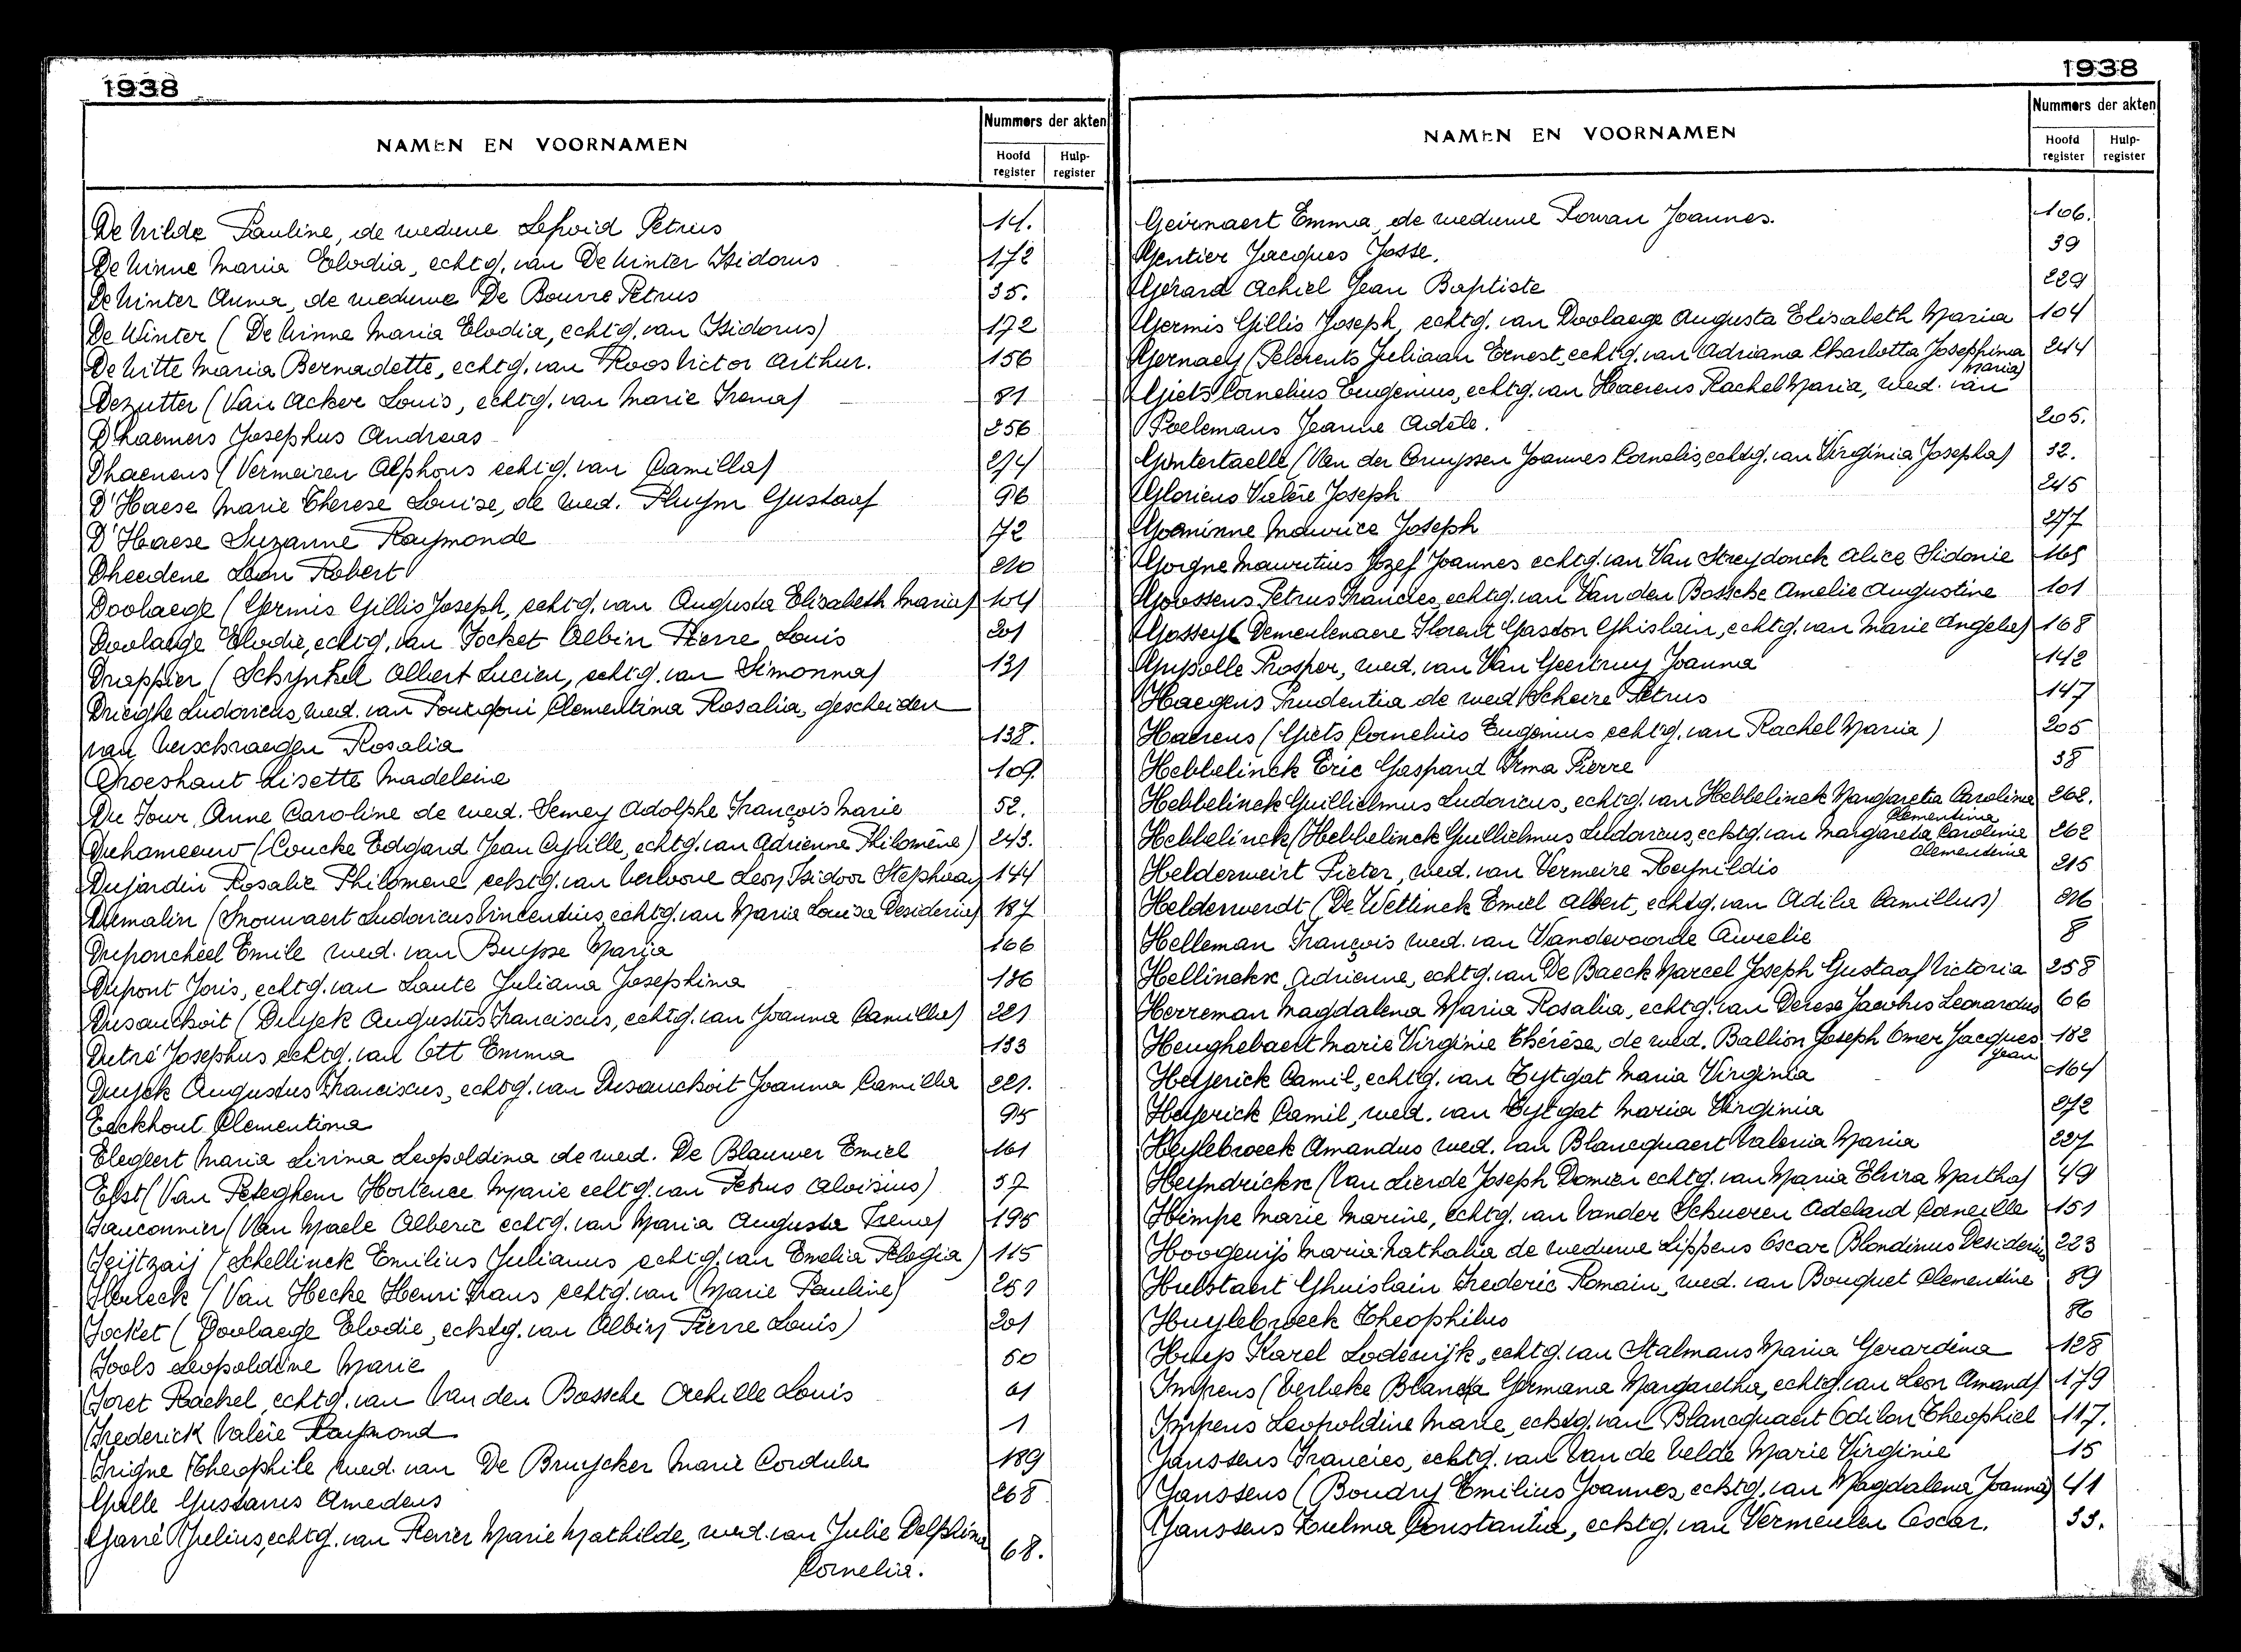 1938
NAMEN EN VOORNAMEN
Nummers der akten
Hoofd register
Hulp-register
De Wilde Pauline, de weduwe Lefroid Petrus 14.
De Winne Maria Elodia, echtg. van De Winter Isidorus 172
De Winter Anna, de weduwe De Bourre Petrus 35.
De Winter (De Winne Maria Elodia, echtg. van Isidorus) 172
De Witte Maria Bernadette, echtg. van Roos Victor Arthur. 156
Dezutter (Van Acker Louis, echtg. van Marie Irena) 81
Dhaemers Josephus Andreas 256
Dhaenens (Vermeiren Alphons echtg. van Camilla) 274
D'Haese Marie Therese Louise, de wed. Pluym Gustaaf 96
D'Haese Suzanne Raymonde 72
Dheedene Leon Robert 210
Doolaege (Germis Gillis Joseph, echtg. van Augusta Elisabeth Maria) 104
Doolaege Elodie, echtg. van Focket Albin Pierre Louis 201
Drappier (Schynkel Albert Lucien, echtg. van Simonna) 131
Drieghe Ludovicus, wed. van Fourgoni Clementina Rosalia, gescheiden
van Verschraegen Rosalia 138.
Droeshaut Lisette Madeleine 109.
Du Four Anne Caroline de wed. Semey Adolphe François Marie 52.
Duhameeuw (Coucke Edgard Jean Cyrille, echtg. van Adrienne Philomène) 243.
Dujardin Rosalie Philomene echtg. van Vervoone Leon Isidoor Stephaan 144
Dumalin (Snouwaert Ludovicus Vincentius, echtg. van Maria Louisa Desideria) 187
Duponcheel Emile wed. van Buysse Maria 166
Dupont Joris, echtg. van Laute Juliana Josephina 186
Dusauchoit (Duyck Augustus Franciscus, echtg. van Joanna Camilla) 221
Dutré Josephus echtg. van Ott Emma 133
Duyck Augustus Franciscus, echtg. van Dusauchoit Joanna Camilla 221.
Eeckhout Clementina 95
Elegeert Maria Livina Leopoldina de wed. De Blauwer Emiel 161
Elst (Van Peteghem Hortence Marie echtg. van Petrus Aloisius) 57
Fauconnier (Van Maele Alberic echtg. van Maria Augusta Irena) 195
Feijtzaij (Schellinck Emilius Julianus echtg. van Emelia Pelagia) 115
(Van Hecke Henri Frans echtg. van Marie Pauline) 251
Focket (Doolaege Elodie, echtg. van Albin Pierre Louis) 201
Fools Leopoldine Marie 50
Foret Rachel, echtg. van Van den Bossche Achille Louis 61
Frederick Valère Raymond 1
Frigne Theophile wed. van De Bruycker Marie Cordula 189
Galle Gustavus Amedeus 268
Garré Julius, echtg. van Marie Mathilde, wed. van Julie Delphina
Cornelia. 68.
1938
NAMEN EN VOORNAMEN
Nummers der akten
Hoofd register
Hulp-register
Geirnaert Emma, de weduwe Rowan Joannes. 106.
Gentier Jacques Josse. 39
Gérard Achiel Jean Baptiste 229
Germis Gillis Joseph, echtg. van Doolaege Augusta Elisabeth Maria 104
Gernaey (Pelerents Juliaan Ernest, echtg. van Adriana Charlotta Josephina 244
Maria)
Giets Cornelius Eugenius, echtg. van Haerens Rachel Maria, wed. van
Poelemans Jeanne Adèle. 205.
Gintertaelle (Van der Cruyssen Joannes Cornelis, echtg. van Virginia Josepha) 32.
Glorieus Valère Joseph 245
Goeminne Maurice Joseph 277
Gorgne Mauritius Jozef Joannes echtg. van Van Streydonck Alice Sidonie 165
Goossens Petrus Francies, echtg. van Van den Bossche Amelie Augustine 101
Gossey (Demeulenaere Florent Gaston Ghislain, echtg. van Marie Angele) 168
Gusolle Prosper, wed. van Van Geertruy Joanna 142
Haegens Prudentia de wed Scheire Petrus 147
Haerens (Giets Cornelius Eugenius echtg. van Rachel Maria) 205
Hebbelinck Eric Gaspard Irma Pierre 38
Hebbelinck Guillielmus Ludovicus, echtg. van Hebbelinck Margareta Carolina 262.
Clementina
Hebbelinck (Hebbelinck Guillielmus Ludovicus, echtg. van Margareta Carolinie 262
Clementina
Helderweirt Pieter, wed. van Vermeire Reynildis 215
Helderwerdt (De Wettinck Emiel Albert, echtg. van Adila Camillus) 216
Helleman François wed. van Vandevoorde Aurelie 8
Hellinckx Adrienne, echtg. van De Baeck Marcel Joseph Gustaaf Victoria 258
Herreman Magdalena Maria Rosalia, echtg. van Derese Jacobus Leonardus 66
Heughebaert Marie Virginie Thérèse, de wed. Ballion Joseph Omer Jacques 182
Jean
Heyerick Camil, echtg. van Tytgat Maria Virginia 164
Heyerick Camil, wed. van Tytgat Maria Virginia 272
Heylebroeck Amandus wed. van Blancquaert Valeria Maria 227
Heyndrickx (Van Lierde Joseph Damien echtg. van Maria Elvira Martha) 49
Himpe Marie Marine, echtg. van Vander Schueren Adelard Corneille 151
Hoogewijs Maria Nathalia de weduwe Lippens Oscar Blondinus Desiderius 223
Hulstaert Ghuislain Frederic Romain, wed. van Bouquet Clementine 89
Huylebroeck Theophilus 86
Huys Karel Lodewijk, echtg. van Stalmans Maria Gerardina 128
Impens (Verbeke Blanca Germana Margaretha, echtg. van Leon Amand) 179
Impens Leopoldine Marie, echtg. van Blancquaert Odilon Theophiel 117.
Janssens Francies, echtg. van Van de Velde Marie Virginie 15
Janssens (Boudry Emilius Joannes, echtg. van Magdalena Joanna) 41
Janssens Zulma Constantia, echtg. van Vermeulen Oscar. 33.